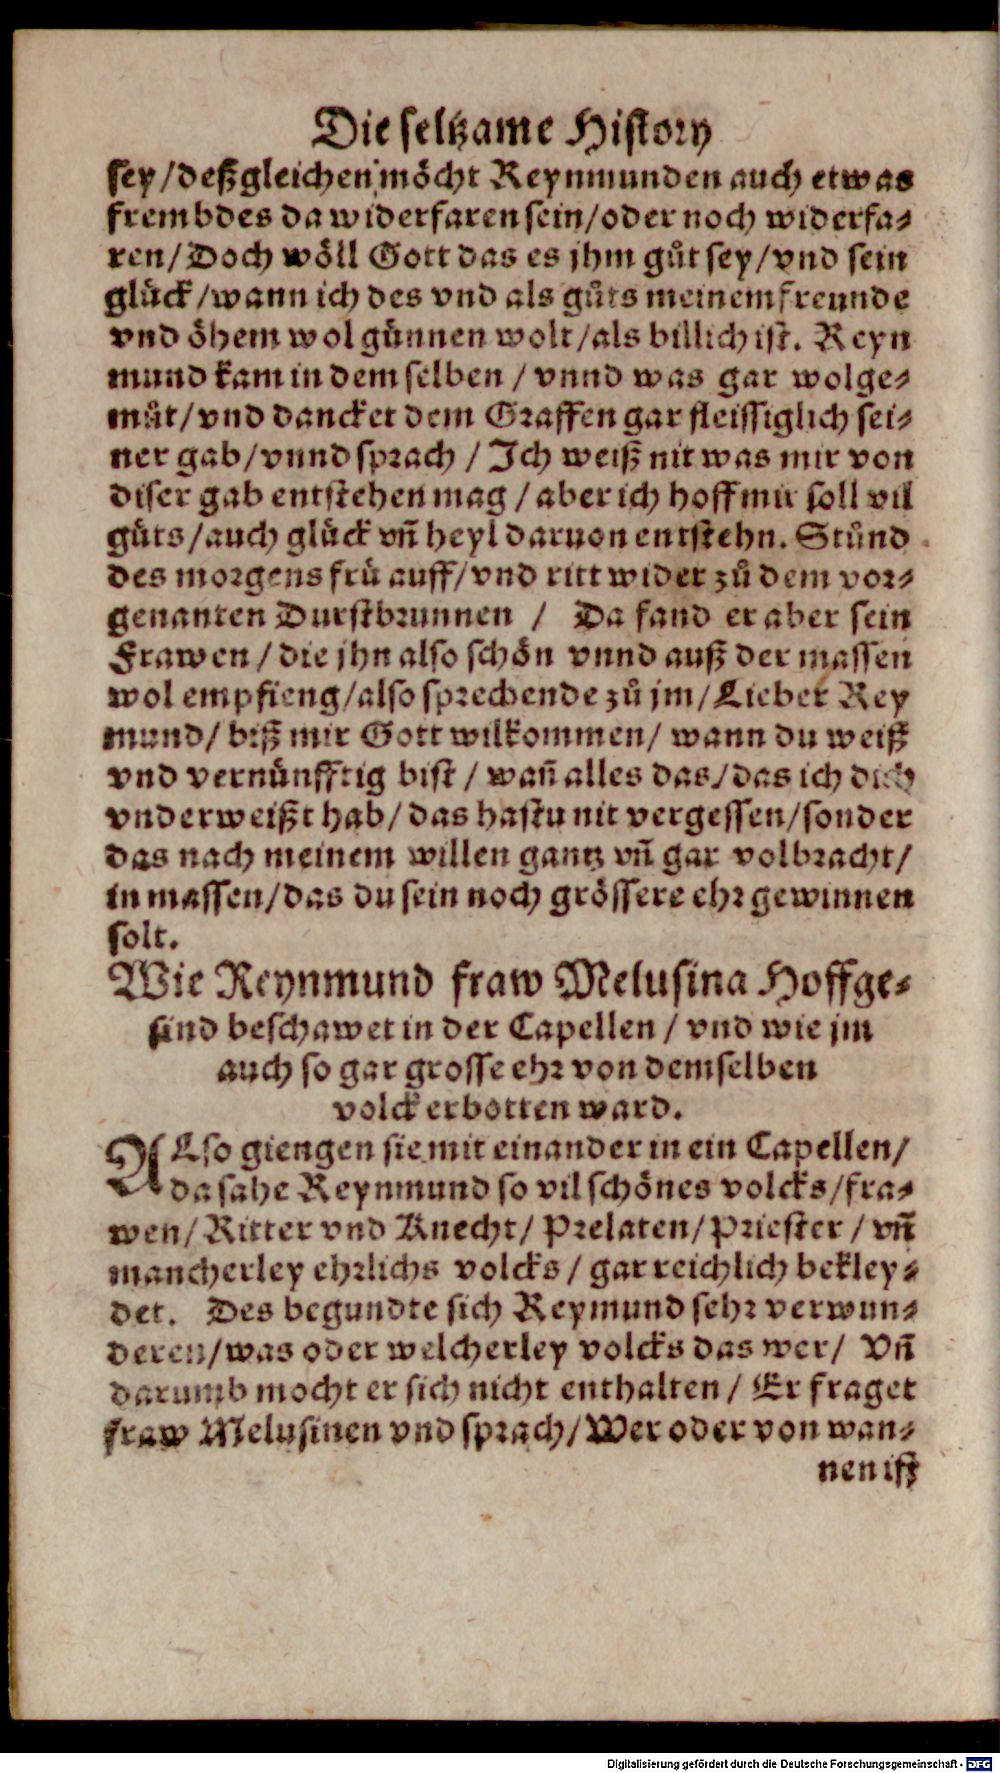 Die seltzame History
sey/deßgleichen möcht Reynmunden auch etwas
frembdes da widerfaren sein/oder noch widerfa⸗
ren/Doch wöll Gott das es jhm gůt sey/vnd sein
glück/wann ich des vnd als gůts meinem freunde
vnd öhem wol günnen wolt/als billich ist. Reyn
mund kam in dem selben / vnnd was gar wolge⸗
můt/vnd dancket dem Graffen gar fleissiglich sei⸗
ner gab/vnnd sprach / Ich weiß nit was mir von
diser gab entstehen mag / aber ich hoff mir soll vil
gůts/auch glück vñ heyl daruon entstehn. Stůnd
des morgens frü auff/vnd ritt wider zů dem vor⸗
genanten Durstbrunnen / Da fand er aber sein
Frawen / die jhn also schön vnnd auß der massen
wol empfieng/also sprechende zů jm/Lieber Rey
mund/ biß mir Gott wilkommen/ wann du weiß
vnd vernünfftig bist / wañ alles das/das ich dich
vnderweißt hab/ das hastu nit vergessen/sonder
das nach meinem willen gantz vñ gar volbracht/
in massen/das du sein noch grössere ehr gewinnen
solt.
Wie Reynmund fraw Melusina Hoffge⸗
sind beschawet in der Capellen / vnd wie jm
auch so gar grosse ehr von demselben
volck erbotten ward.
ALso giengen sie mit einander in ein Capellen/
da sahe Reynmund so vil schönes volcks/fra⸗
wen/ Ritter vnd Knecht/ Prelaten/ Priester / vñ
mancherley ehrlichs volcks / gar reichlich bekley⸗
det. Des begundte sich Reymund sehr verwun⸗
deren/was oder welcherley volcks das wer/ Vñ
darumb mocht er sich nicht enthalten / Er fraget
fraw Melusinen vnd sprach/Wer oder von wan⸗
nen ist
Digitalisierung gefördert durch die Deutsche Forschungsgemeinschaft - DFG